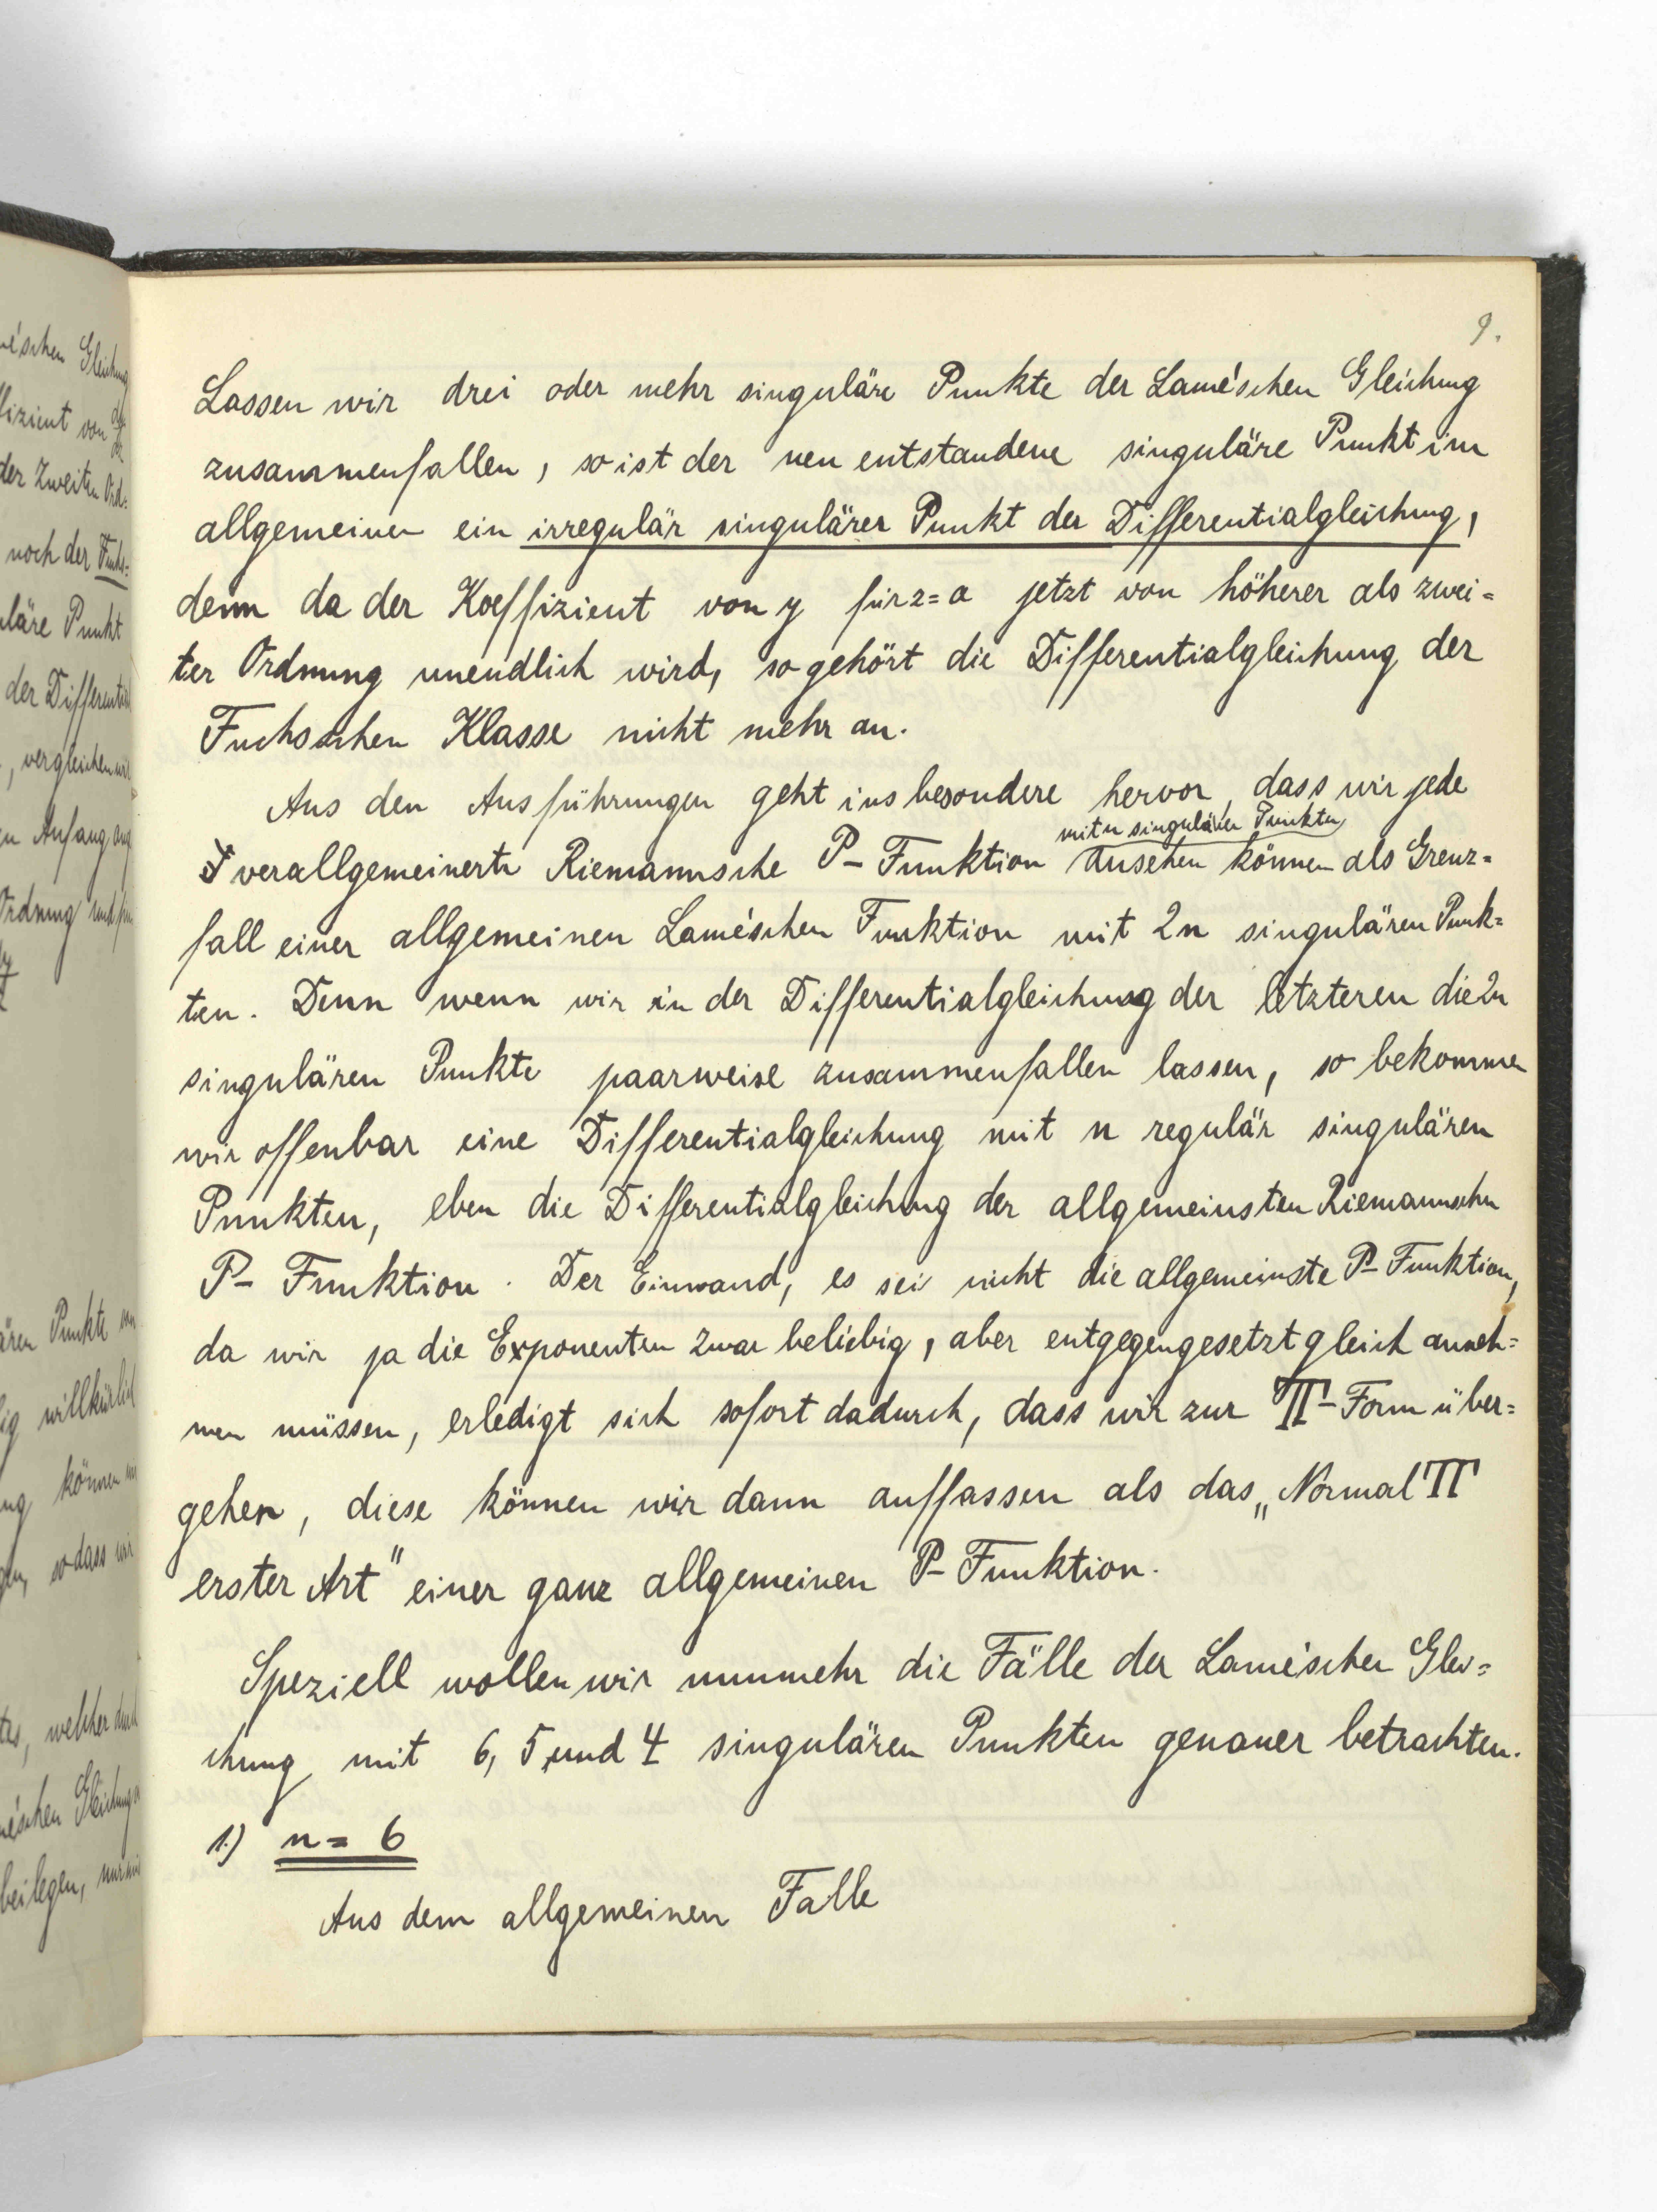 9.
Lassen wir drei oder mehr singuläre Punkte der Lamé'schen Gleichung
zusammenfallen, so ist der neu entstandene singuläre Punkt im
allgemeinen ein irregulär singulärer Punkt der Differentialgleichung,
denn da der Koeffizient von y für z=a jetzt von höherer als zwei=
ter Ordnung unendlich wird, so gehört die Differentialgleichung der
Fuchsschen Klasse nicht mehr an.
Aus den Ausführungen geht insbesondere hervor, dass wir jede
mit n singulären Punkten
verallgemeinerte Riemannsche P- Funktion ansehen können als Grenz=
fall einer allgemeinen Lamé'schen Funktion mit 2n singulären Punk=
ten. Denn wenn wir in der Differentialgleichung der letzteren die 2n
singulären Punkte paarweise zusammenfallen lassen, so bekommen
wir offenbar eine Differentialgleichung mit n regulär singulären
Punkten, eben die Differentialgleichung der allgemeinsten Riemannschen
P- Funktion. Der Einwand, es sei nicht die allgemeinste P- Funktion,
da wir ja die Exponenten zwar beliebig, aber entgegengesetzt gleich anneh=
men müssen, erledigt sich sofort dadurch, dass wir zur Π- Form über=
gehen, diese können wir dann auffassen als das „Normal Π
erster Art" einer ganz allgemeinen P- Funktion.
Speziell wollen wir nunmehr die Fälle der Lamé'schen Glei=
chung mit 6, 5 und 4 singulären Punkten genauer betrachten.
1.) n = 6
Aus dem allgemeinen Falle